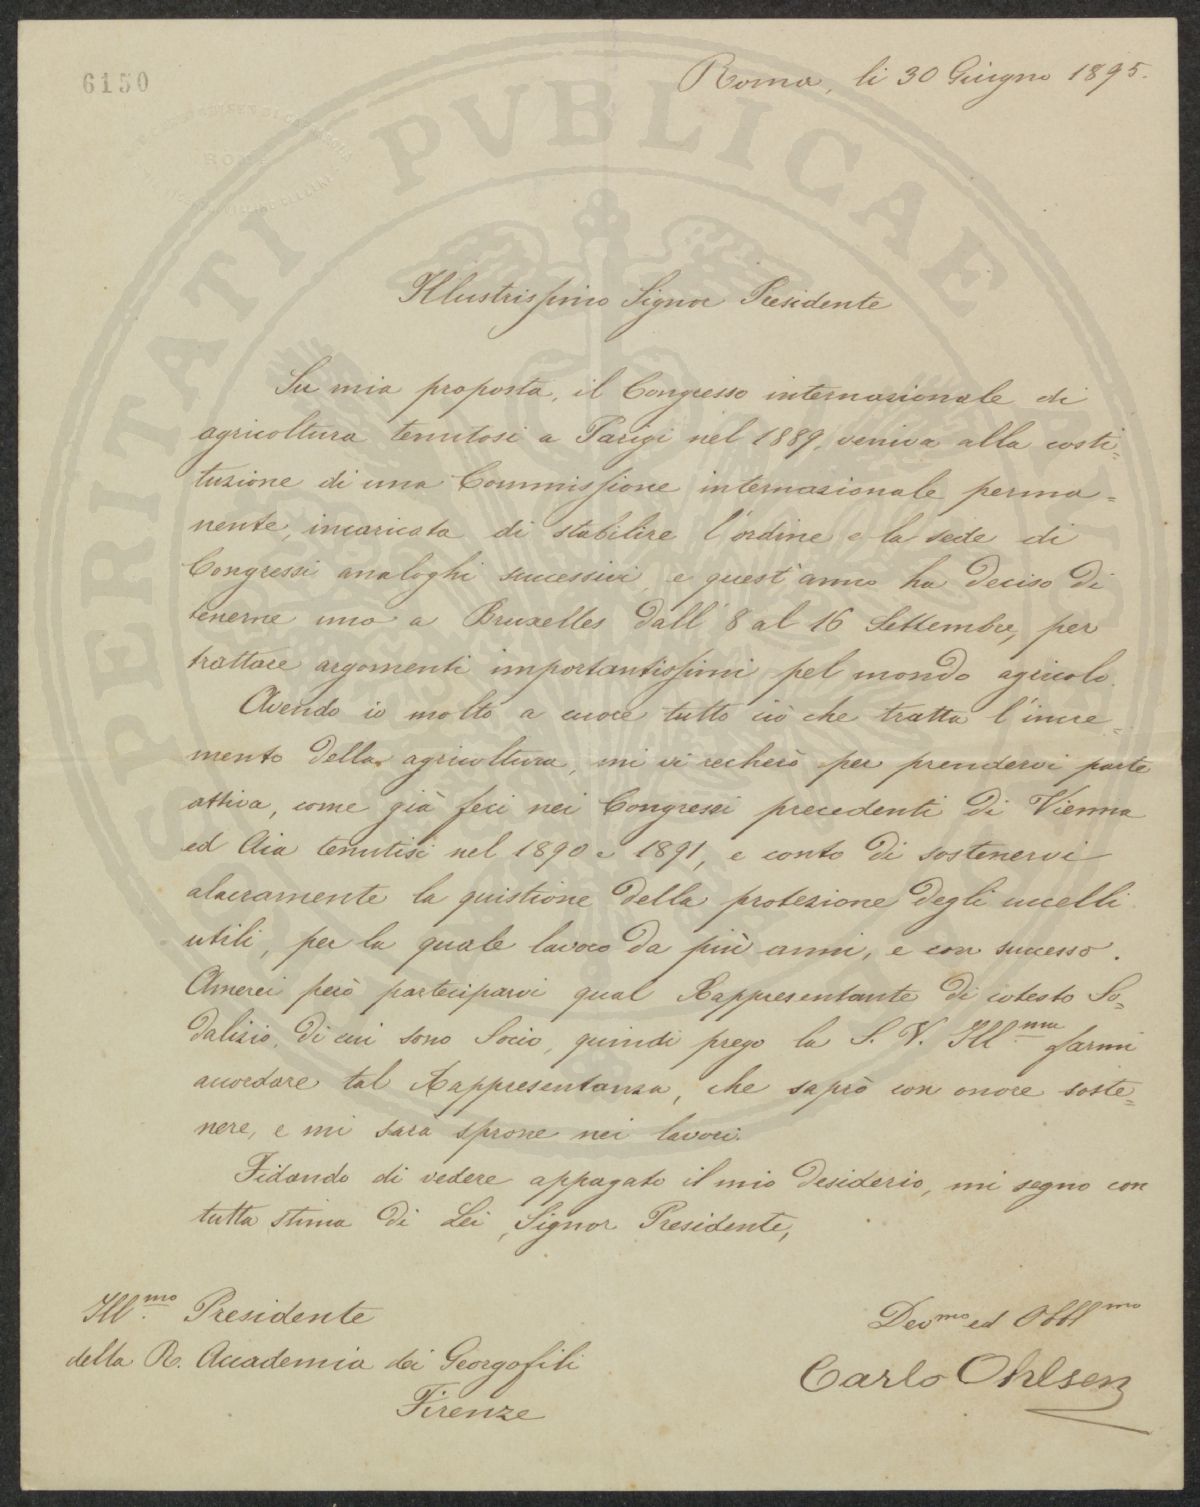 6150
Roma, li 30 Giugno 1895.
PROSPERITATI PVBLICAE
ROMA
Illustrissimo Signor Presidente
Su mia proposta, il Congresso internazionale di
agricoltura tenutosi a Parigi nel 1889, veniva alla costi=
tuzione di una Commissione internazionale perma=
nente, incaricata di stabilire l'ordine e la sede di
Congressi analoghi successivi, e quest'anno ha deciso di
tenerne uno a Bruxelles dall' 8 al 16 Settembre, per
trattare argomenti importantissimi pel mondo agricolo.
Avendo io molto a cuore tutto ciò che tratta l'incre=
mento della agricoltura, mi vi recherò per prendervi parte
attiva, come già feci nei Congressi precedenti di Vienna
ed Aia tenutisi nel 1890 e 1891, e conto di sostenervi
alacramente la quistione della protezione degli uccelli
utili, per la quale lavoro da più anni, e con successo.
Amerei però parteciparvi qual Rappresentante di cotesto So=
dalizio, di cui sono Socio, quindi prego la S. V. Ill.ma farmi
accordare tal Rappresentanza, che saprò con onore soste=
nere, e mi sarà sprone nei lavori.
Fidando di vedere appagato il mio desiderio, mi segno con
tutta stima di Lei, Signor Presidente,
Ill.mo Presidente
della R. Accademia dei Georgofili
Firenze
Devmo ed Obblmo
Carlo Ohlsen